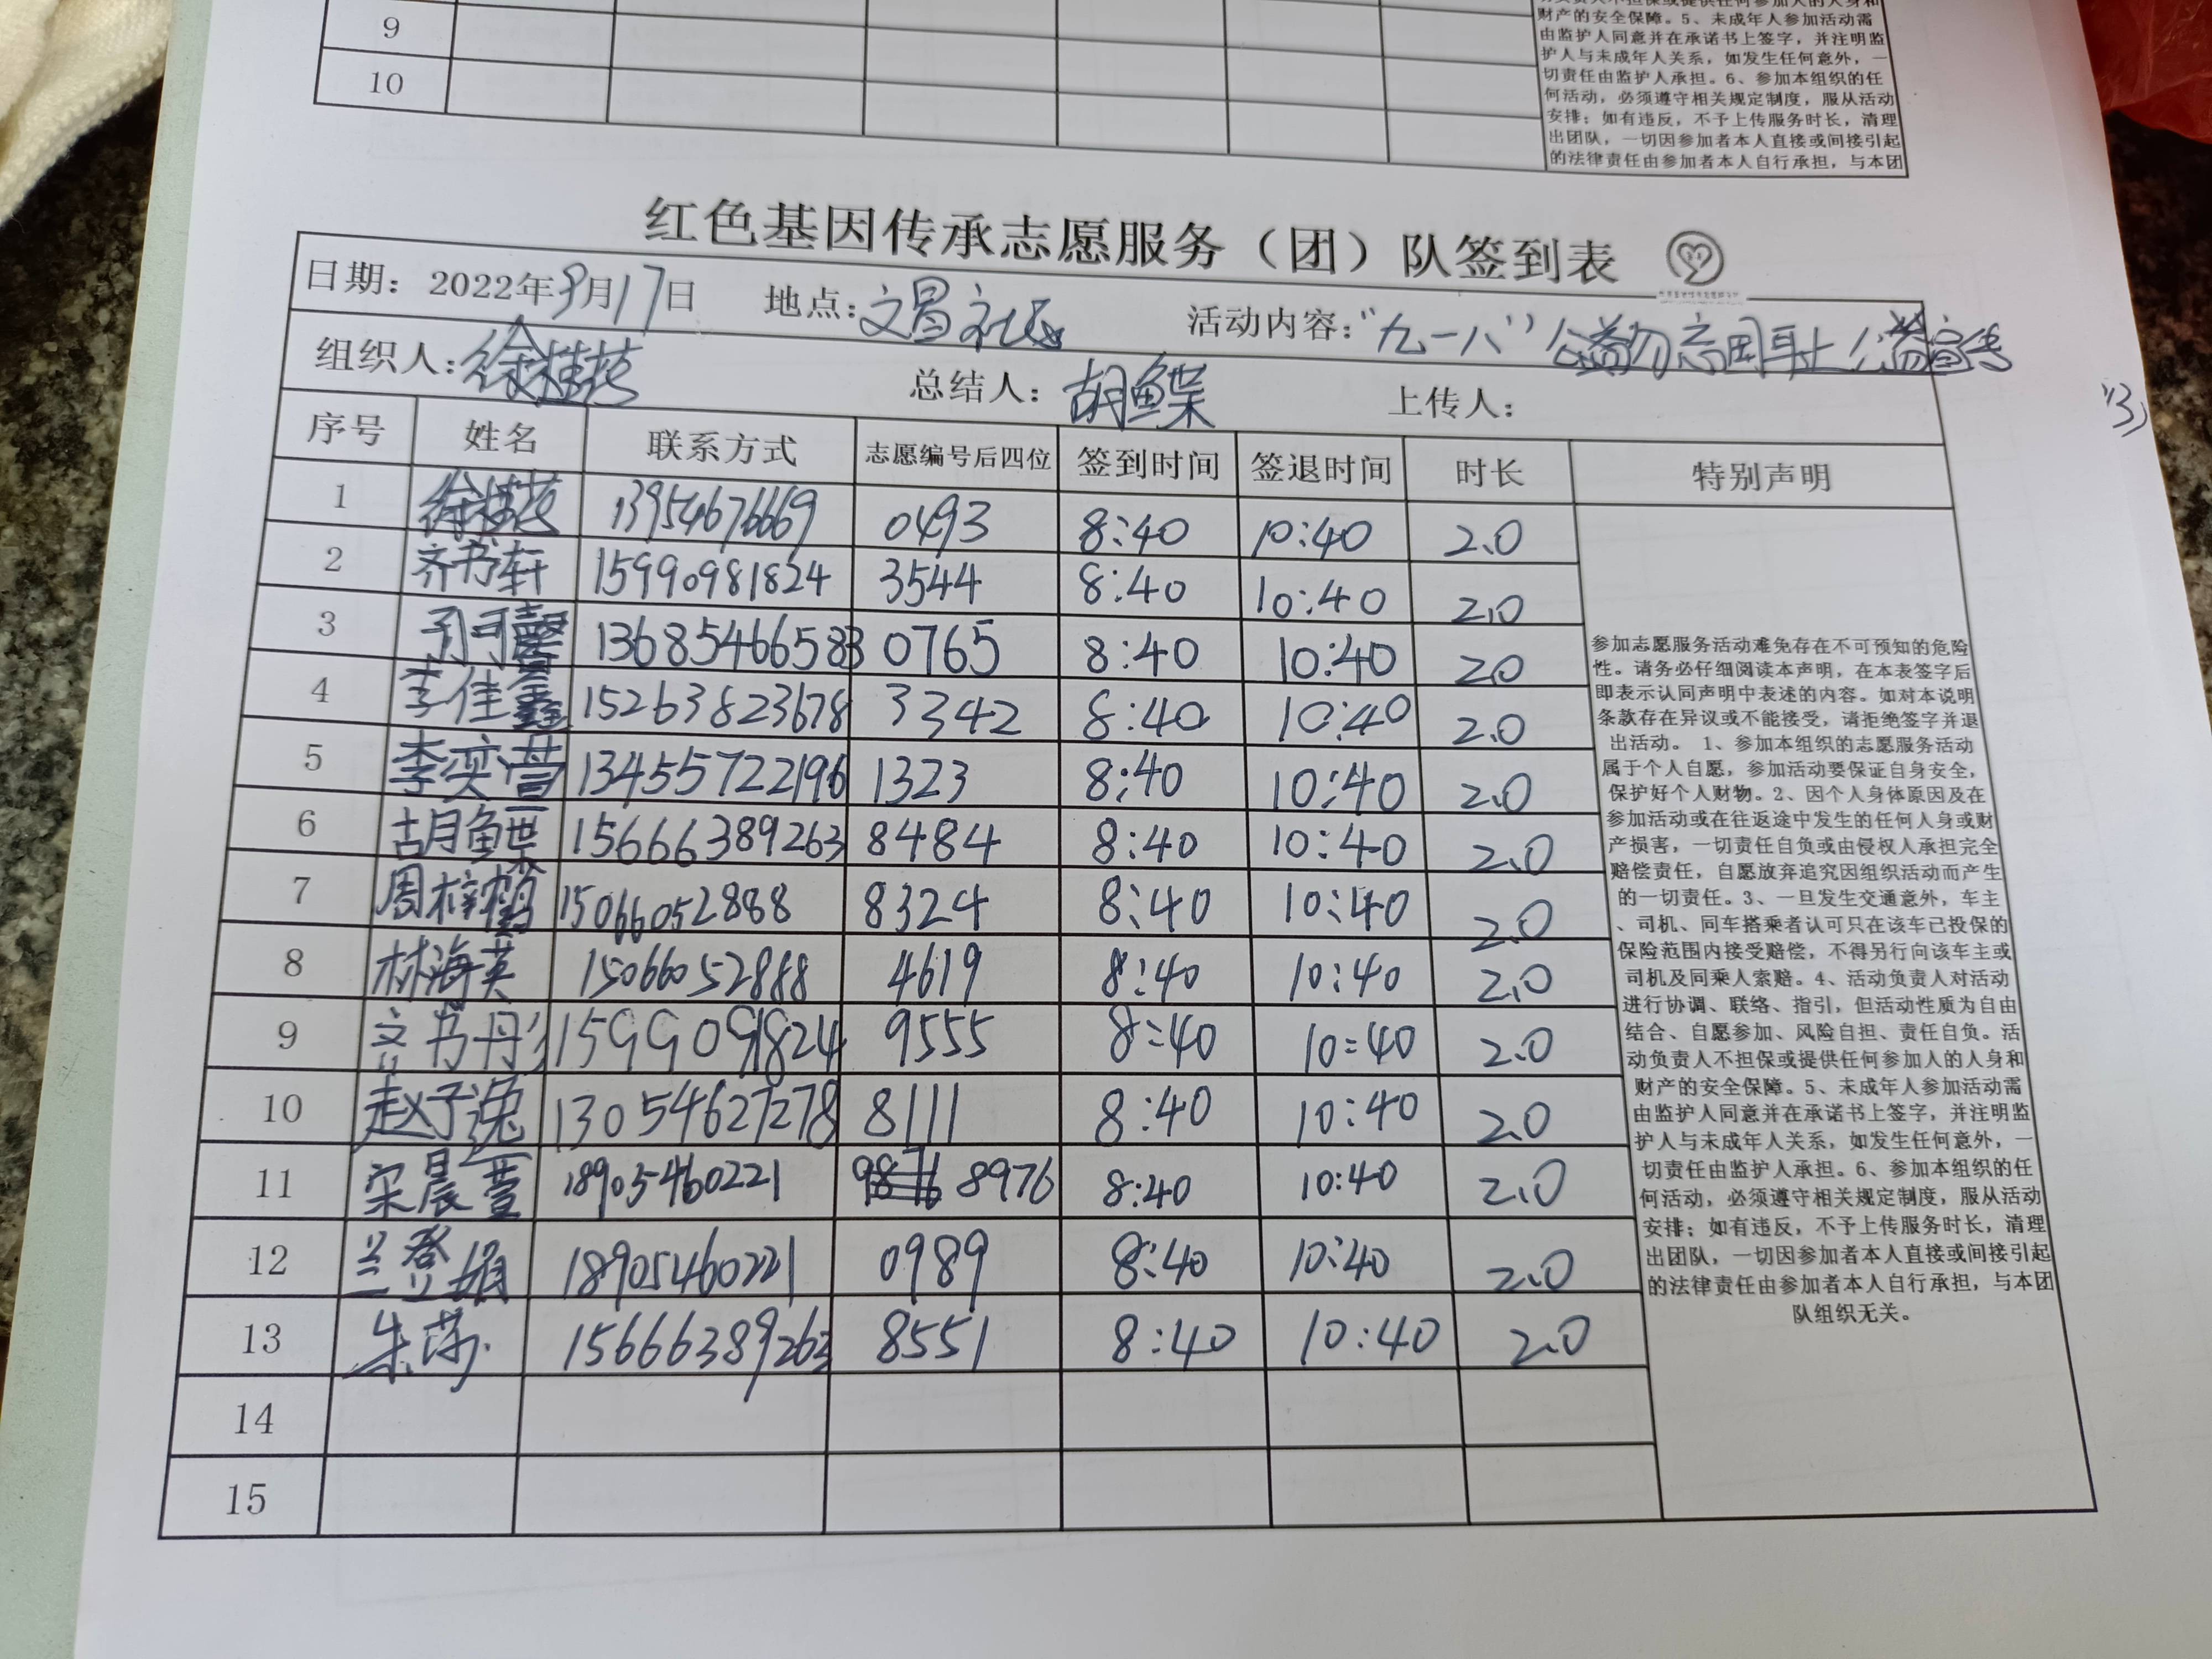 9
财产的安全保障。5、未成年人参加活动需
由监护人同意并在承诺书上签字，并注明监
护人与未成年人关系，如发生任何意外，一
切责任由监护人承担。6、参加本组织的任
10
何活动，必须遵守相关规定制度，服从活动
安排；如有违反，不予上传服务时长，清理
出团队，一切因参加者本人直接或间接引起
的法律责任由参加者本人自行承担，与本团
红色基因传承志愿服务（团）队签到表
日期：2022年9月17日 地点：文昌社区 活动内容：“九一八”公益勿忘国耻 公益宣传
组织人：徐桂芬 总结人：胡鲽 上传人：
序号 姓名 联系方式 志愿编号后四位 签到时间 签退时间 时长 特别声明
1 徐桂芬 13954676669 0493 8:40 10:40 2.0
2 齐书轩 15990981824 3544 8:40 10:40 2.0
3 孙可馨 13685466583 0765 8:40 10:40 20
4 李佳鑫 15263823678 3342 8:40 10:40 2.0
5 李奕萱 13455722196 1323 8:40 10:40 2.0
6 胡鲽 15666389263 8484 8:40 10:40 2.0
7 周梓 15066052888 8324 8:40 10:40 2.0
8 林海英 15066052888 4619 8:40 10:40 2.0
9 齐书丹彤 1599091824 9555 8:40 10:40 2.0
10 赵子逸 13054627278 8111 8:40 10:40 2.0
11 宋晨萱 18905460221 8976 8:40 10:40 2.0
12 兰登娟 18905460221 0989 8:40 10:40 2.0
13 朱莎 15666389263 8551 8:40 10:40 2.0
14
15
参加志愿服务活动难免存在不可预知的危险
性。请务必仔细阅读本声明，在本表签字后
即表示认同声明中表述的内容。如对本说明
条款存在异议或不能接受，请拒绝签字并退
出活动。 1、参加本组织的志愿服务活动
属于个人自愿，参加活动要保证自身安全，
保护好个人财物。2、因个人身体原因及在
参加活动或在往返途中发生的任何人身或财
产损害，一切责任自负或由侵权人承担完全
赔偿责任，自愿放弃追究因组织活动而产生
的一切责任。3、一旦发生交通意外，车主
、司机、同车搭乘者认可只在该车已投保的
保险范围内接受赔偿，不得另行向该车主或
司机及同乘人索赔。4、活动负责人对活动
进行协调、联络、指引，但活动性质为自由
结合、自愿参加、风险自担、责任自负。活
动负责人不担保或提供任何参加人的人身和
财产的安全保障。5、未成年人参加活动需
由监护人同意并在承诺书上签字，并注明监
护人与未成年人关系，如发生任何意外，一
切责任由监护人承担。6、参加本组织的任
何活动，必须遵守相关规定制度，服从活动
安排；如有违反，不予上传服务时长，清理
出团队，一切因参加者本人直接或间接引起
的法律责任由参加者本人自行承担，与本团
队组织无关。